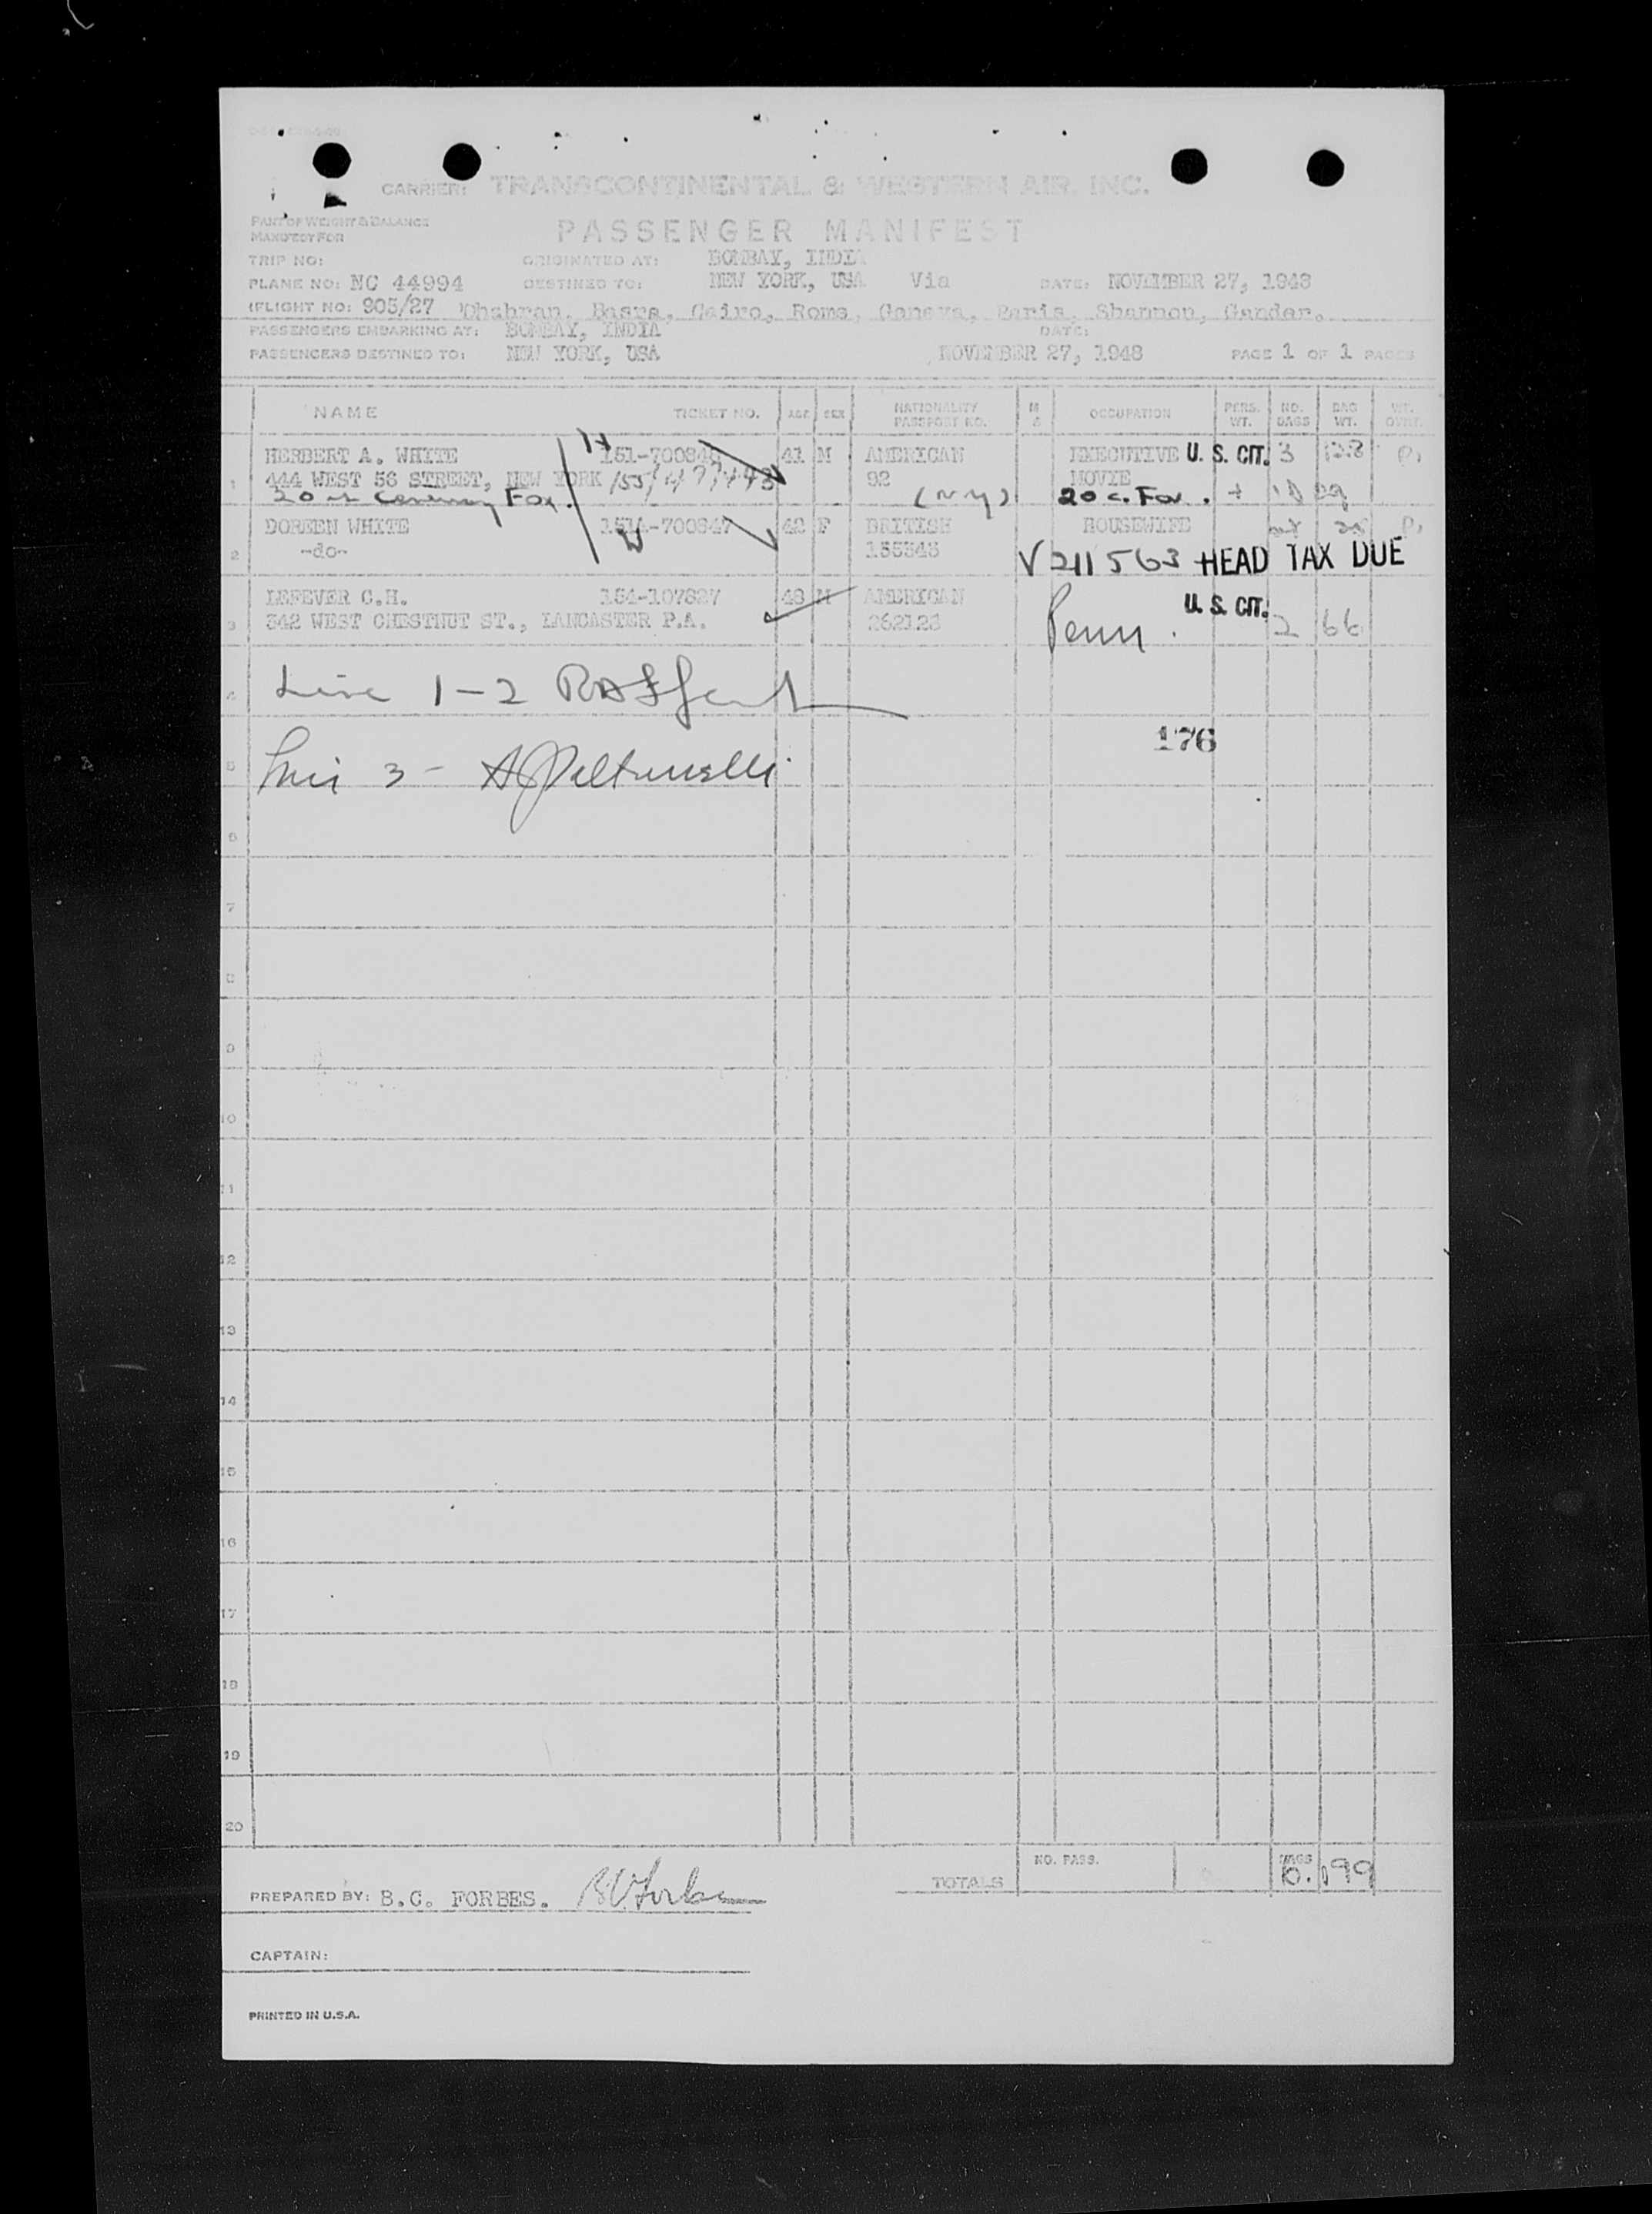 CARRIER: TRANSCONTINENTAL & WESTERN AIR, INC.
PART OF WEIGHT & BALANCE
MANIFEST FOR
PASSENGER MANIFEST
TRIP NO: ORIGINATED AT: BOMBAY, INDIA
PLANE NO: NC 44994 DESTINED TO: NEW YORK, USA Via DATE: NOVEMBER 27, 1948
FLIGHT NO: 905/27 Dhahran, Basra, Cairo, Rome, Geneva, Paris, Shannon, Gander.
PASSENGERS EMBARKING AT: BOMBAY, INDIA DATE:
PASSENGERS DESTINED TO: NEW YORK, USA NOVEMBER 27, 1948 PAGE 1 OF 1 PAGES
NAME TICKET NO. AGE SEX NATIONALITY PASSPORT NO. M A OCCUPATION PERS. WT. NO. BAGS BAG WT. WT. OVER.
HERBERT A. WHITE 41 M AMERICAN EXECUTIVE U. S. CIT. 3
1 444 WEST 56 STREET, NEW YORK 92 (NY) MOVIE
20th Century Fox. 20 c. Fox.
DOREEN WHITE 42 F BRITISH HOUSEWIFE
2 -do- V 211563 HEAD TAX DUE
LEFEVER C.H. 154-107827 48 M AMERICAN U. S. CIT.
3 342 WEST CHESTNUT ST., LANCASTER P.A. 262123 Penn. 2 66
4 Line 1-2
176
5 Line 3 -
6
7
8
9
10
11
12
13
14
15
16
17
18
19
20
NO. PASS. BAGS
TOTALS 199
PREPARED BY: B.C. FORBES.
CAPTAIN:
PRINTED IN U.S.A.